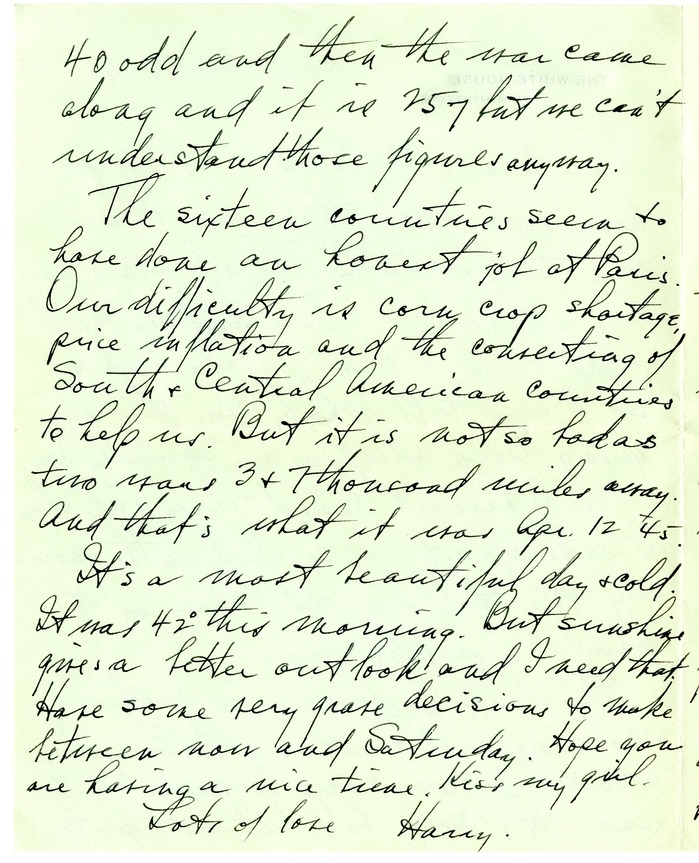 40 odd and then the war came
along and it is 257 but we can't
understand those figures anyway.
The sixteen countries seem to
have done an honest job at Paris.
Our difficulty is corn crop shortage,
price inflation and the conserting of
South & Central American countries
to help us. But it is not so bad as
two wars 3 & 7 thousand miles away.
And that's what it was Apr. 12 '45.
It's a most beautiful day & cold.
It was 42° this morning. But sunshine
gives a better outlook and I need that.
Have some very grave decisions to make
between now and Saturday. Hope you
are having a nice time. Kiss my girl.
Lots of love Harry.
THE WHITE HOUSE